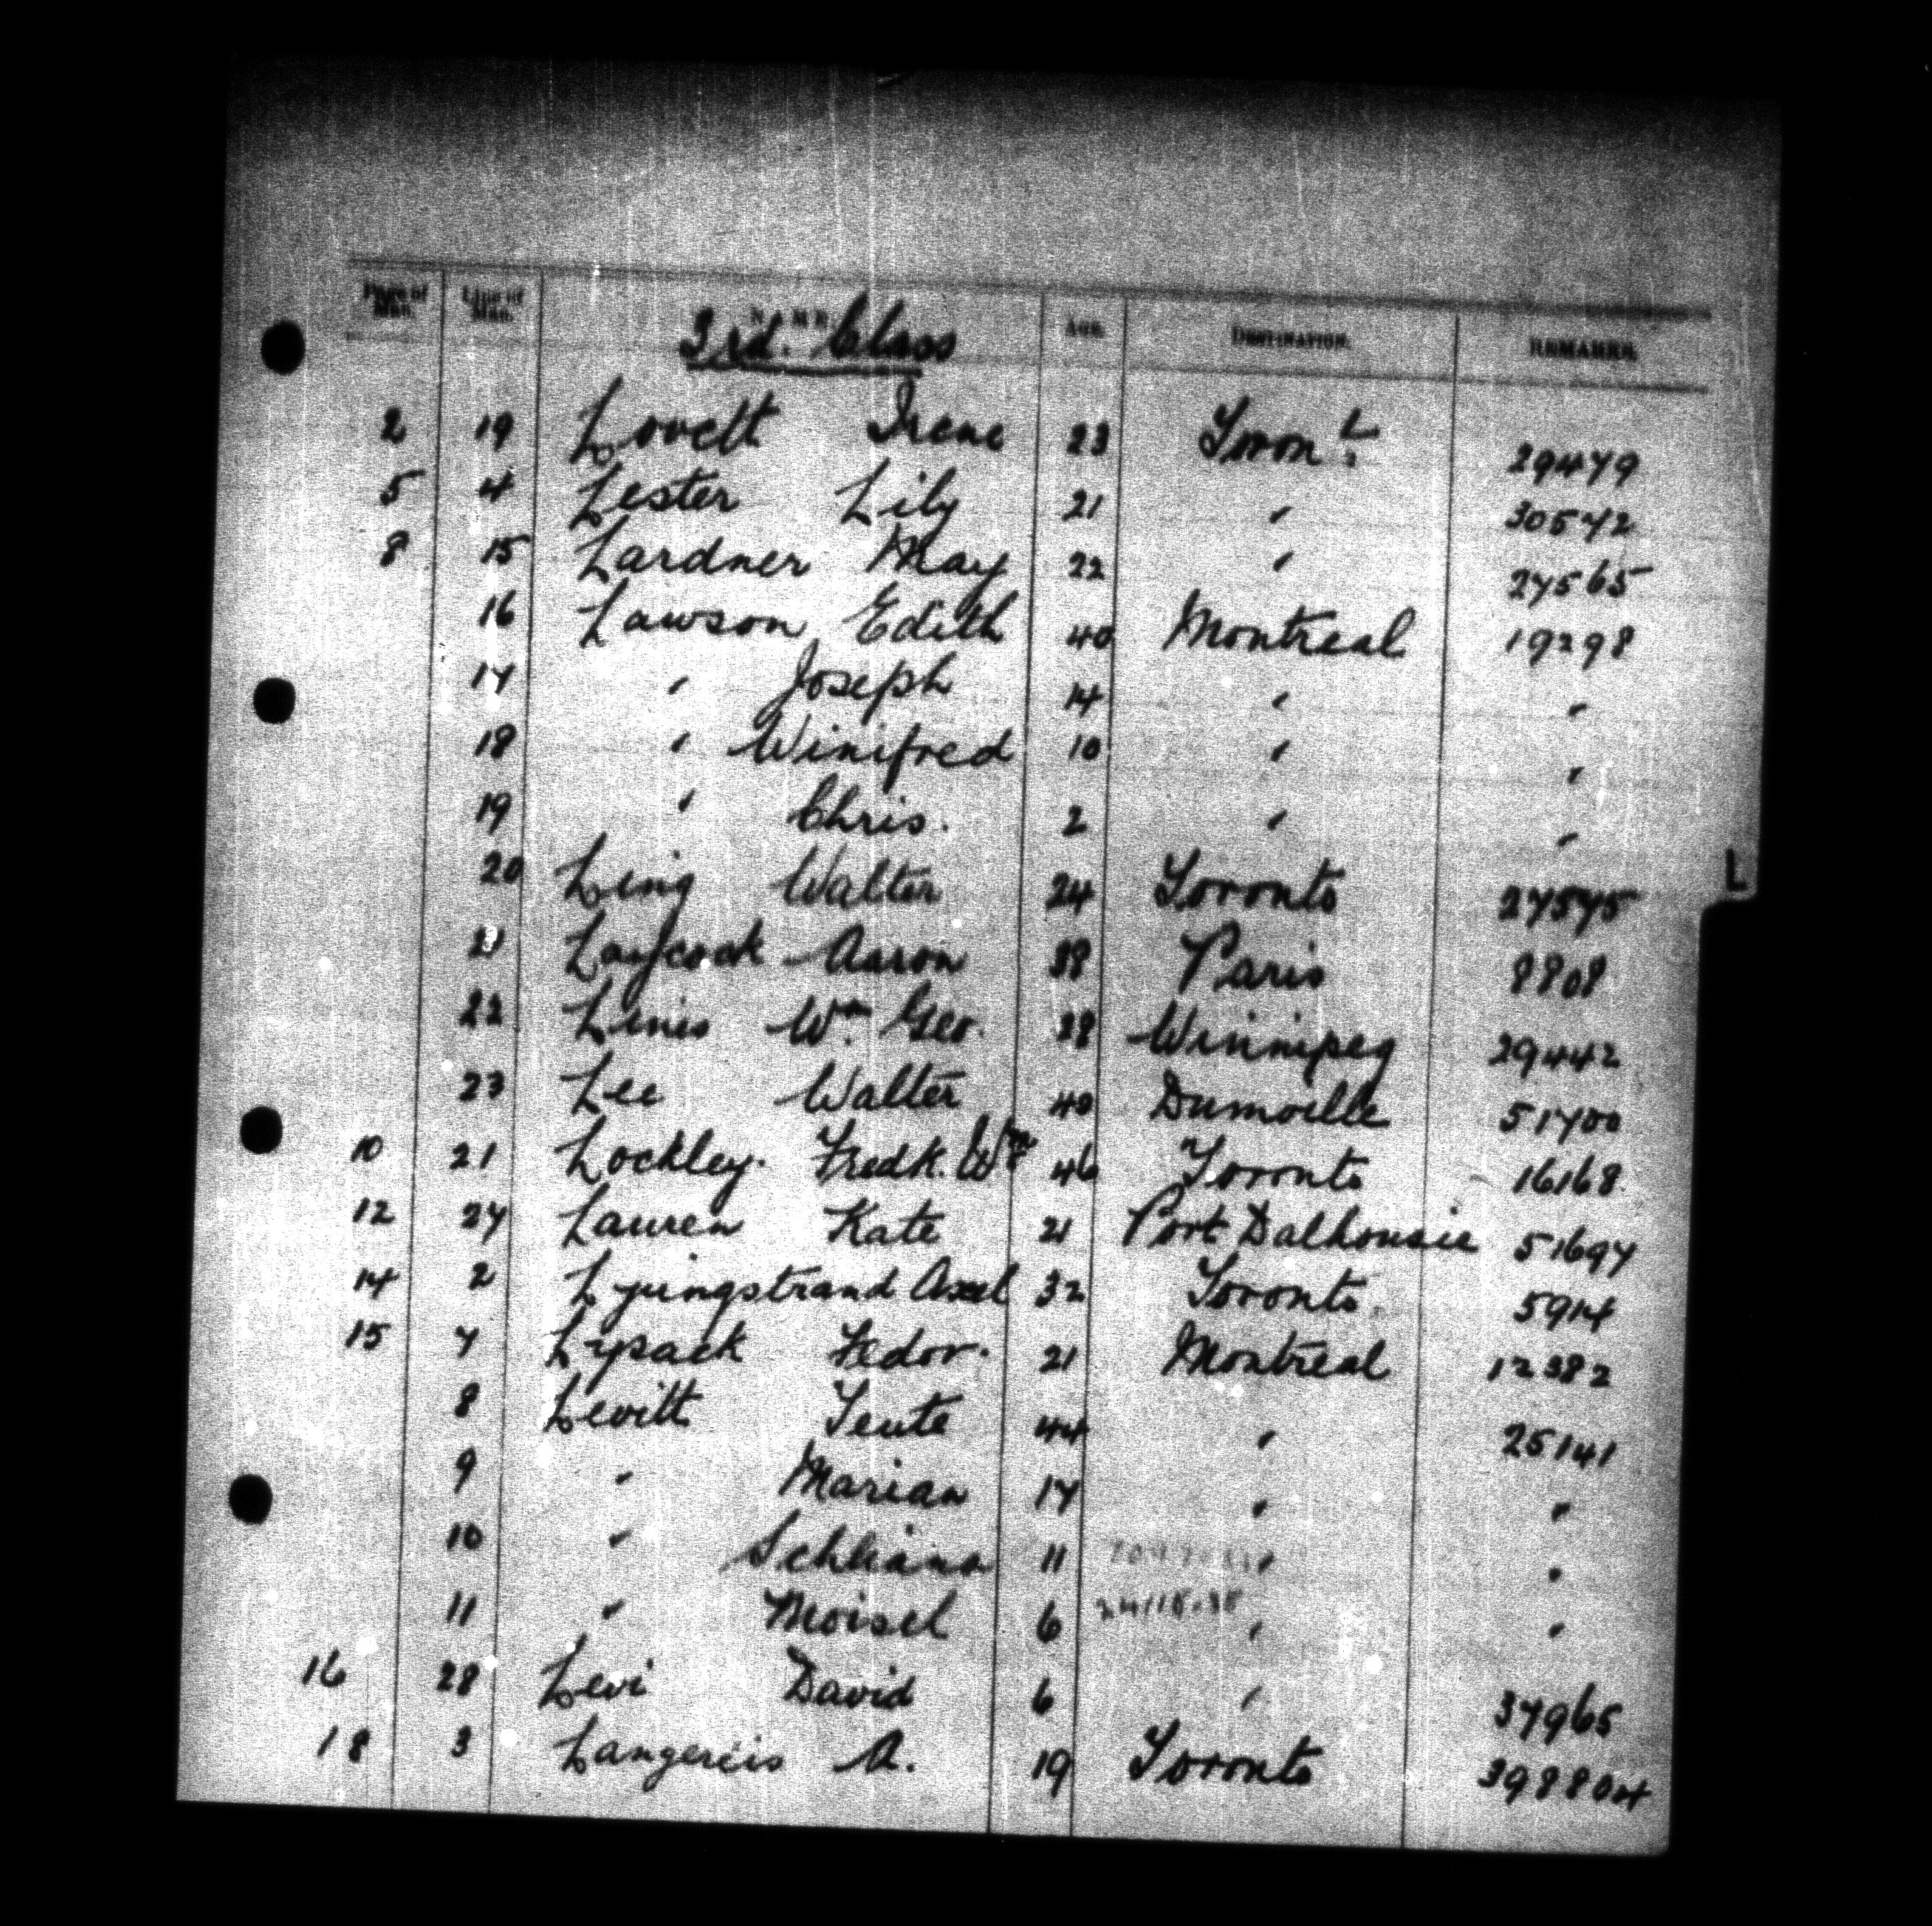 Page of Man. Line of Man. NAME AGE. DESTINATION. REMARKS.
3rd. Class
2 19 Lovett Irene 23 Toron t. 29479
5 4 Lester Lily 21 " 30542
8 15 Lardner May 22 " 27565
16 Lawson Edith 40 Montreal 19298
17 " Joseph 14 " "
18 " Winifred 10 " "
19 " Chris. 2 " "
L
20 Ling Walter 24 Toronto 27575
21 Laycock Aaron 38 Paris 8808
22 Linis Wm. Geo. 28 Winnipeg 29442
23 Lee Walter 40 Dumville 51700
10 21 Lockley. Fredk. Wm 46 Toronto 16168
12 27 Lauren Kate 21 Port Dalhousie 51697
14 2 Lyungstrand Axel 32 Toronto. 5914
15 7 Lypack Fedor. 21 Montreal 12382
8 Levitt Tente 44 " 25141
9 " Marian 17 " "
10 " Schliana 11 " "
11 " Moisel 6 " "
16 28 Levi David 6 " 37965
18 3 Langereis A. 19 Toronto 398804